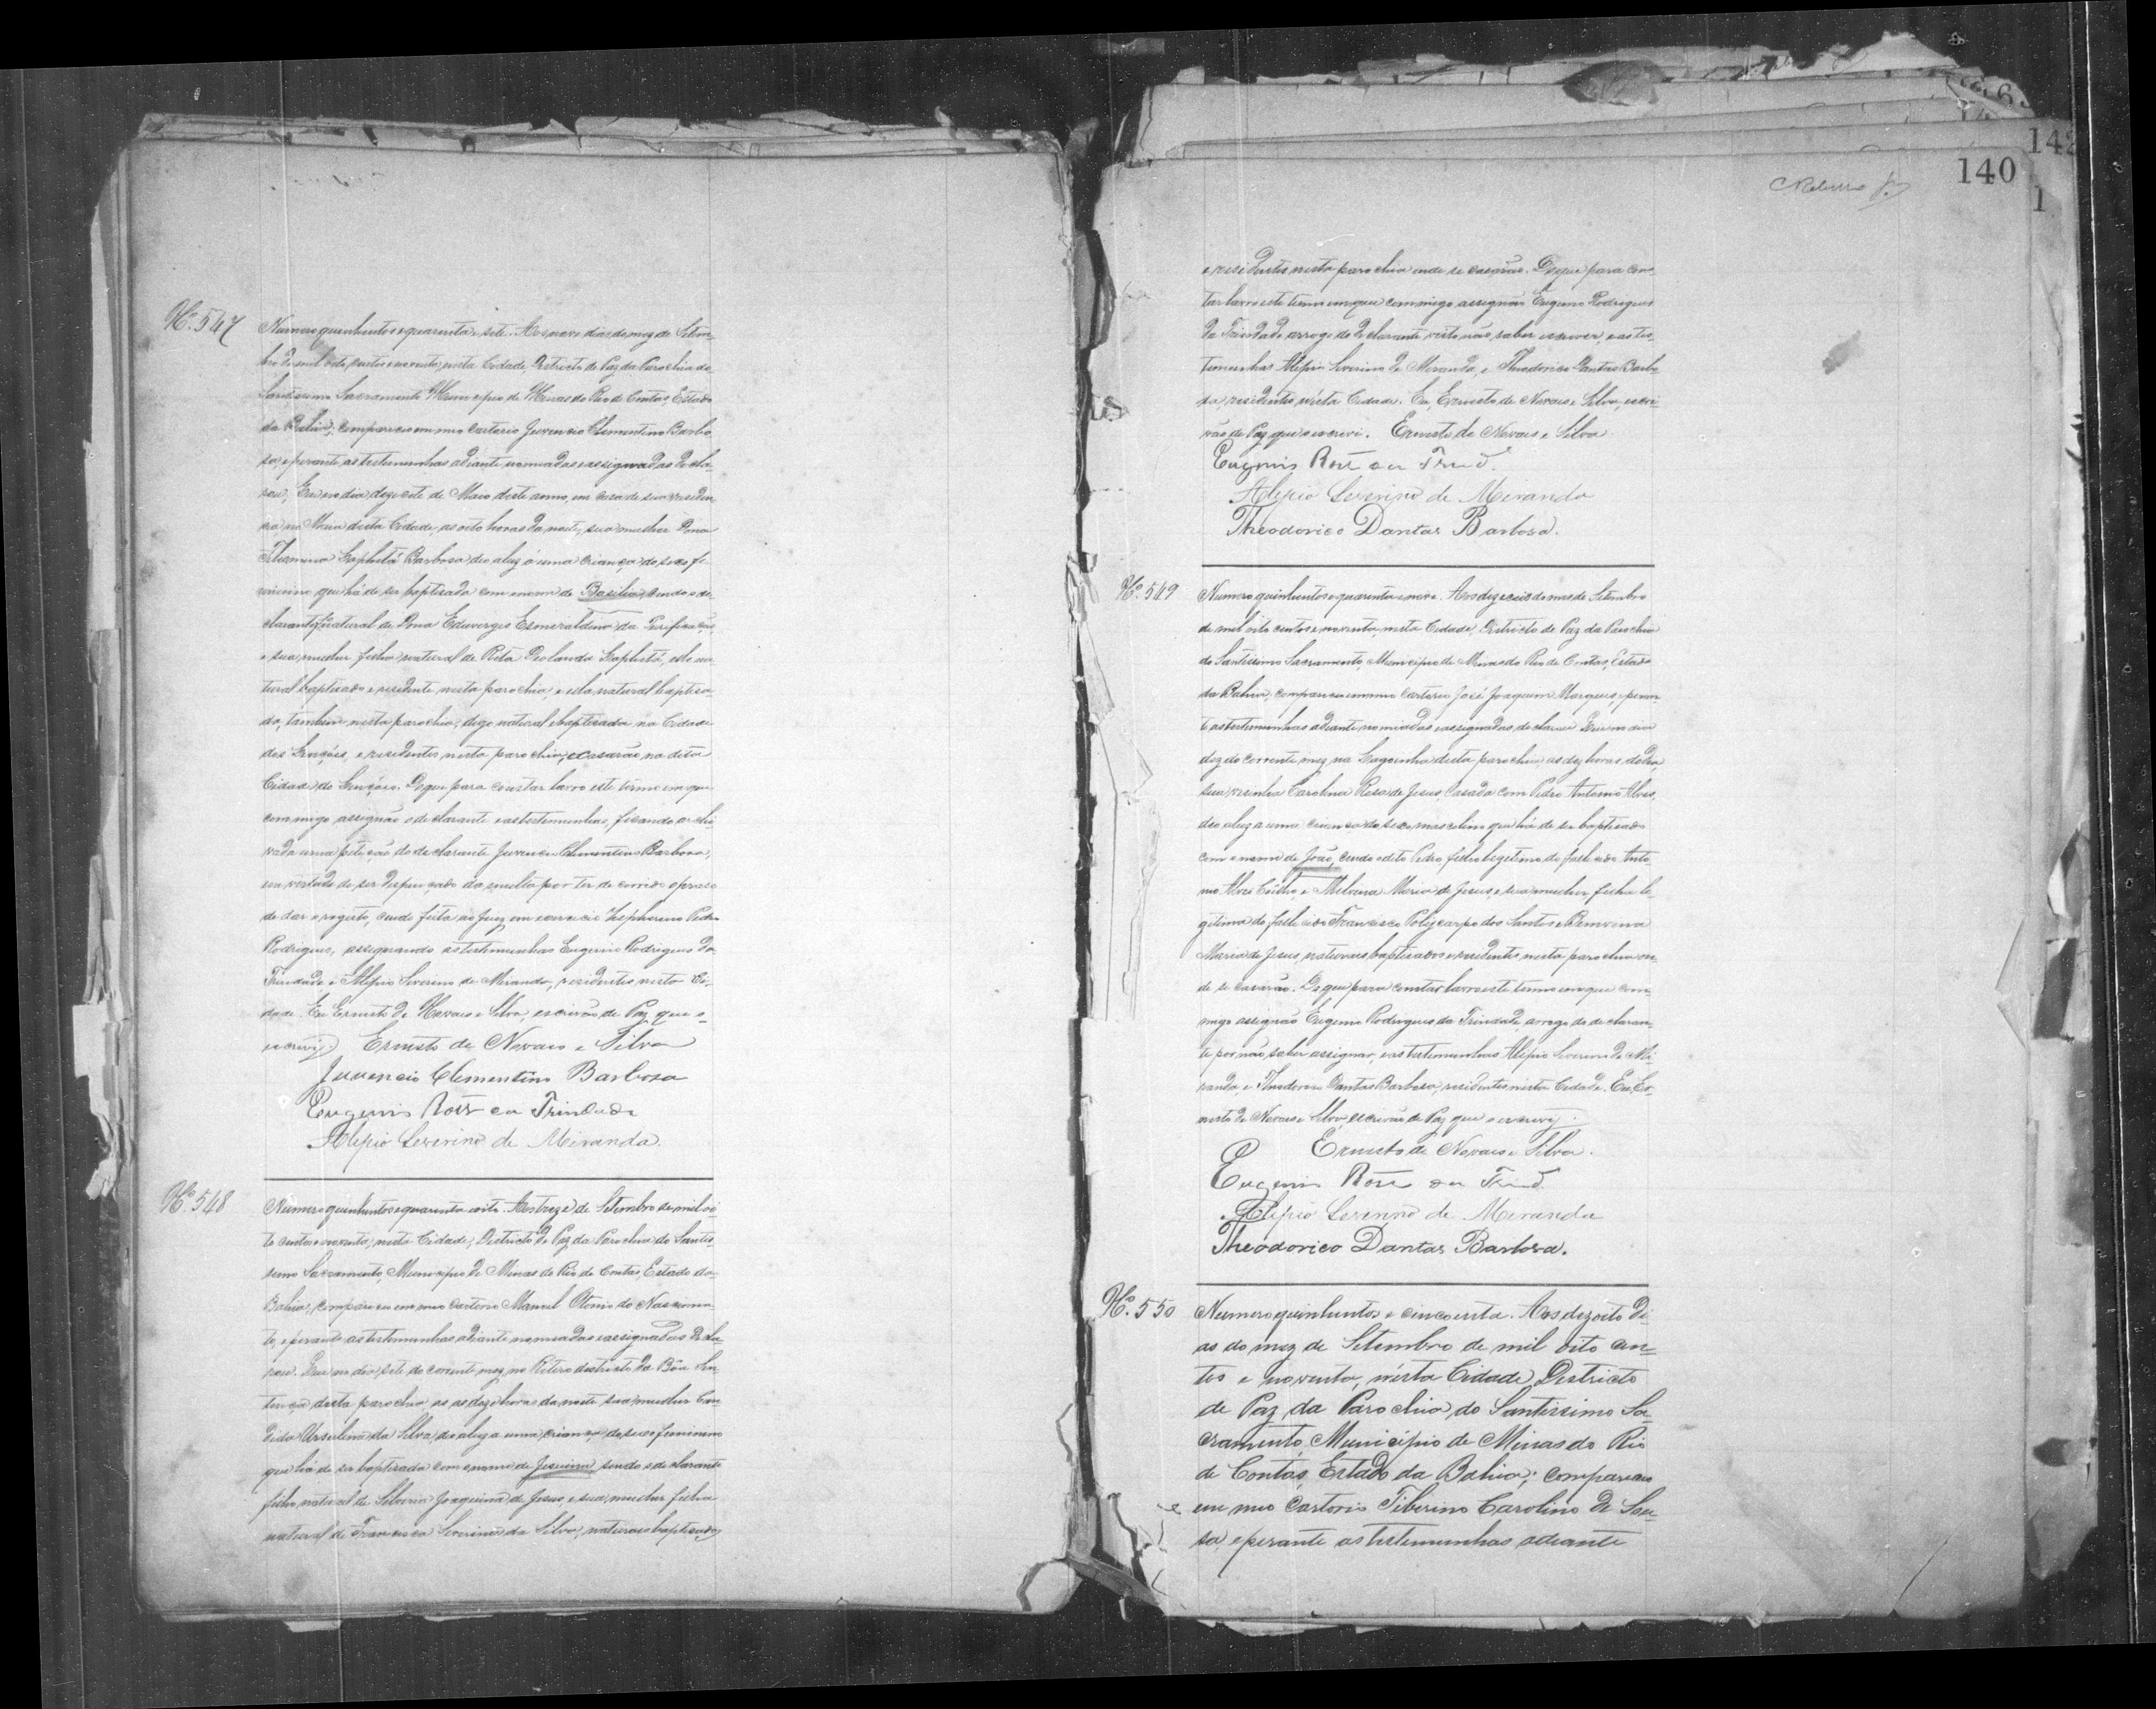 Nº. 547
Numero quinhentos e quarenta e sete. Aos nove dias do mez de Setem-
bro de mil oito centos e noventa, nesta Cidade, Districto de Paz da Parochia do
Santissimo Sacramento Municipio de Minas do Rio de Contas, Estado
da Bahia; compareceu em meu Cartorio Juvencio Clementino Barbo
sa, e perante as testemunhas adiante nomeadas e assignadas decla-
rou, Que no dia dezesete de Maio deste anno, em casa de sua residen
cia na desta Cidade, as oito horas da noite, sua mulher Dona
Filomena Baptista Barbosa deo a luz á uma criança do sexo fe
minino que há de ser baptisada com o nome de Basilia, sendo o de-
clarante filho natural de Dona Eduverges Esmeraldina da Purificação,
e sua mulher filha natural de Rita Baptista, elle na-
tural baptisado e residente nesta parochia, e ella natural baptisa
da, tambem nesta parochia, digo natural e baptisada na Cidade
dos Lençóes, e residentes nesta parochia, e casarão na dita
Cidade de Lençóes. De que para constar lavro este termo em que
commigo assignão o declarante e as testemunhas, ficando archi-
vada uma petição do declarante Juvencio Clementino Barbosa,
em virtude de ser dispensado da multa por ter decorrido o praso
de dar o registo, sendo feita ao Juiz em exercicio Zepherino Pedro
Rodrigues, assignando as testemunhas Eugenio Rodrigues da
Trindade e Alipio Severino de Miranda, residentes nesta Ci-
dade. Eu Ernesto de Novaes e Silva, escrivão de Paz que o
escrevi. Ernesto de Novaes e Silva
Juvencio Clementino Barbosa
Eugenio Roiz da Trindade
Alipio Severino de Miranda.
Nº. 548
Numero quinhentos e quarenta e oito. Aos treze de Setembro de mil oi
to centos e noventa, nesta Cidade, Districto de Paz da Parochia do Santis-
simo Sacramento, Municipio de Minas do Rio de Contas, Estado da
Bahia, compareceu em meu Cartorio Manoel do Nascimen-
to, e perante as testemunhas adiante nomeadas e assignadas decla
rou. Que no dia sete do corrente mez, no districto da Bôa Sen
tença desta parochia, as as doze horas da noite sua mulher Can
dida Ursulina da Silva, deo a luz a uma criança do sexo feminino
que há de ser baptisada com o nome de Jesuina, sendo o declarante
filho natural de Silveria Joaquina de Jesus, e sua mulher filha
natural de Francisca Severina da Silva, naturaes baptisados
140
142
e residentes nesta parochia onde se casarão. De que para cons
tar lavro este termo em que commigo assignão Eugenio Rodrigues
da Trindade a rogo do declarante visto não saber escrever, e as tes
temunhas Alipio Severino de Miranda, e Theodorico Dantas Barbo
sa, residentes nesta Cidade. Eu, Ernesto de Novaes e Silva, escri-
vão de Paz que o escrevi. Ernesto de Novaes e Silva
Eugenio Roiz da Trind.
Alipio Severino de Miranda
Theodorico Dantas Barbosa.
Nº. 549
Numero quinhentos e quarenta e nove. Aos dezeseis do mez de Setembro
de mil oito centos e noventa, nesta Cidade, Districto de Paz da Parochia
do Santissimo Sacramento, Municipio de Minas do Rio de Contas, Estado
da Bahia, compareceu em meu Cartorio José Joaquim Marques, e peran
te as testemunhas adiante nomeadas e assignadas declarou Que no dia
dez do corrente mez, na Lagoinha desta parochia, as dez horas do dia,
sua visinha Carolina Rosa de Jesus, casada com Pedro Antonio Alves,
deo a luz a uma criança do sexo masculino que há de ser baptisado
com o nome de João, sendo o dito Pedro filho legitimo do fallecido Anto
nio Alves Coêlho, e Maria de Jesus, e sua mulher filha le
gitima do fallecido Francisco Polycarpo dos Santos e
Maria de Jesus, naturaes, baptisados e residentes nesta parochia on-
de se casarão. De que para constar lavro este termo em que com-
migo assignão Eugenio Rodrigues da Trindade, a rogo do declaran-
te por não saber assignar, e as testemunhas Alipio Severino de Mi-
randa e Theodorico Dantas Barbosa, residentes nesta Cidade. Eu, Er-
nesto de Novaes e Silva, escrivão de Paz que o escrevi.
Ernesto de Novaes e Silva.
Eugenio Roiz da Trind.
Alipio Severino de Miranda
Theodorico Dantas Barbosa.
Nº. 550
Numero quinhentos e cincoenta. Aos dezoito di
as do mez de Setembro de mil oito cen-
tos e noventa, nesta Cidade, Districto
de Paz da Parochia do Santissimo Sa-
cramento, Municipio de Minas do Rio
de Contas, Estado da Bahia; compareceu
em meu Cartorio Tiberino Carolino de Sou-
sa, e perante as testemunhas adiante